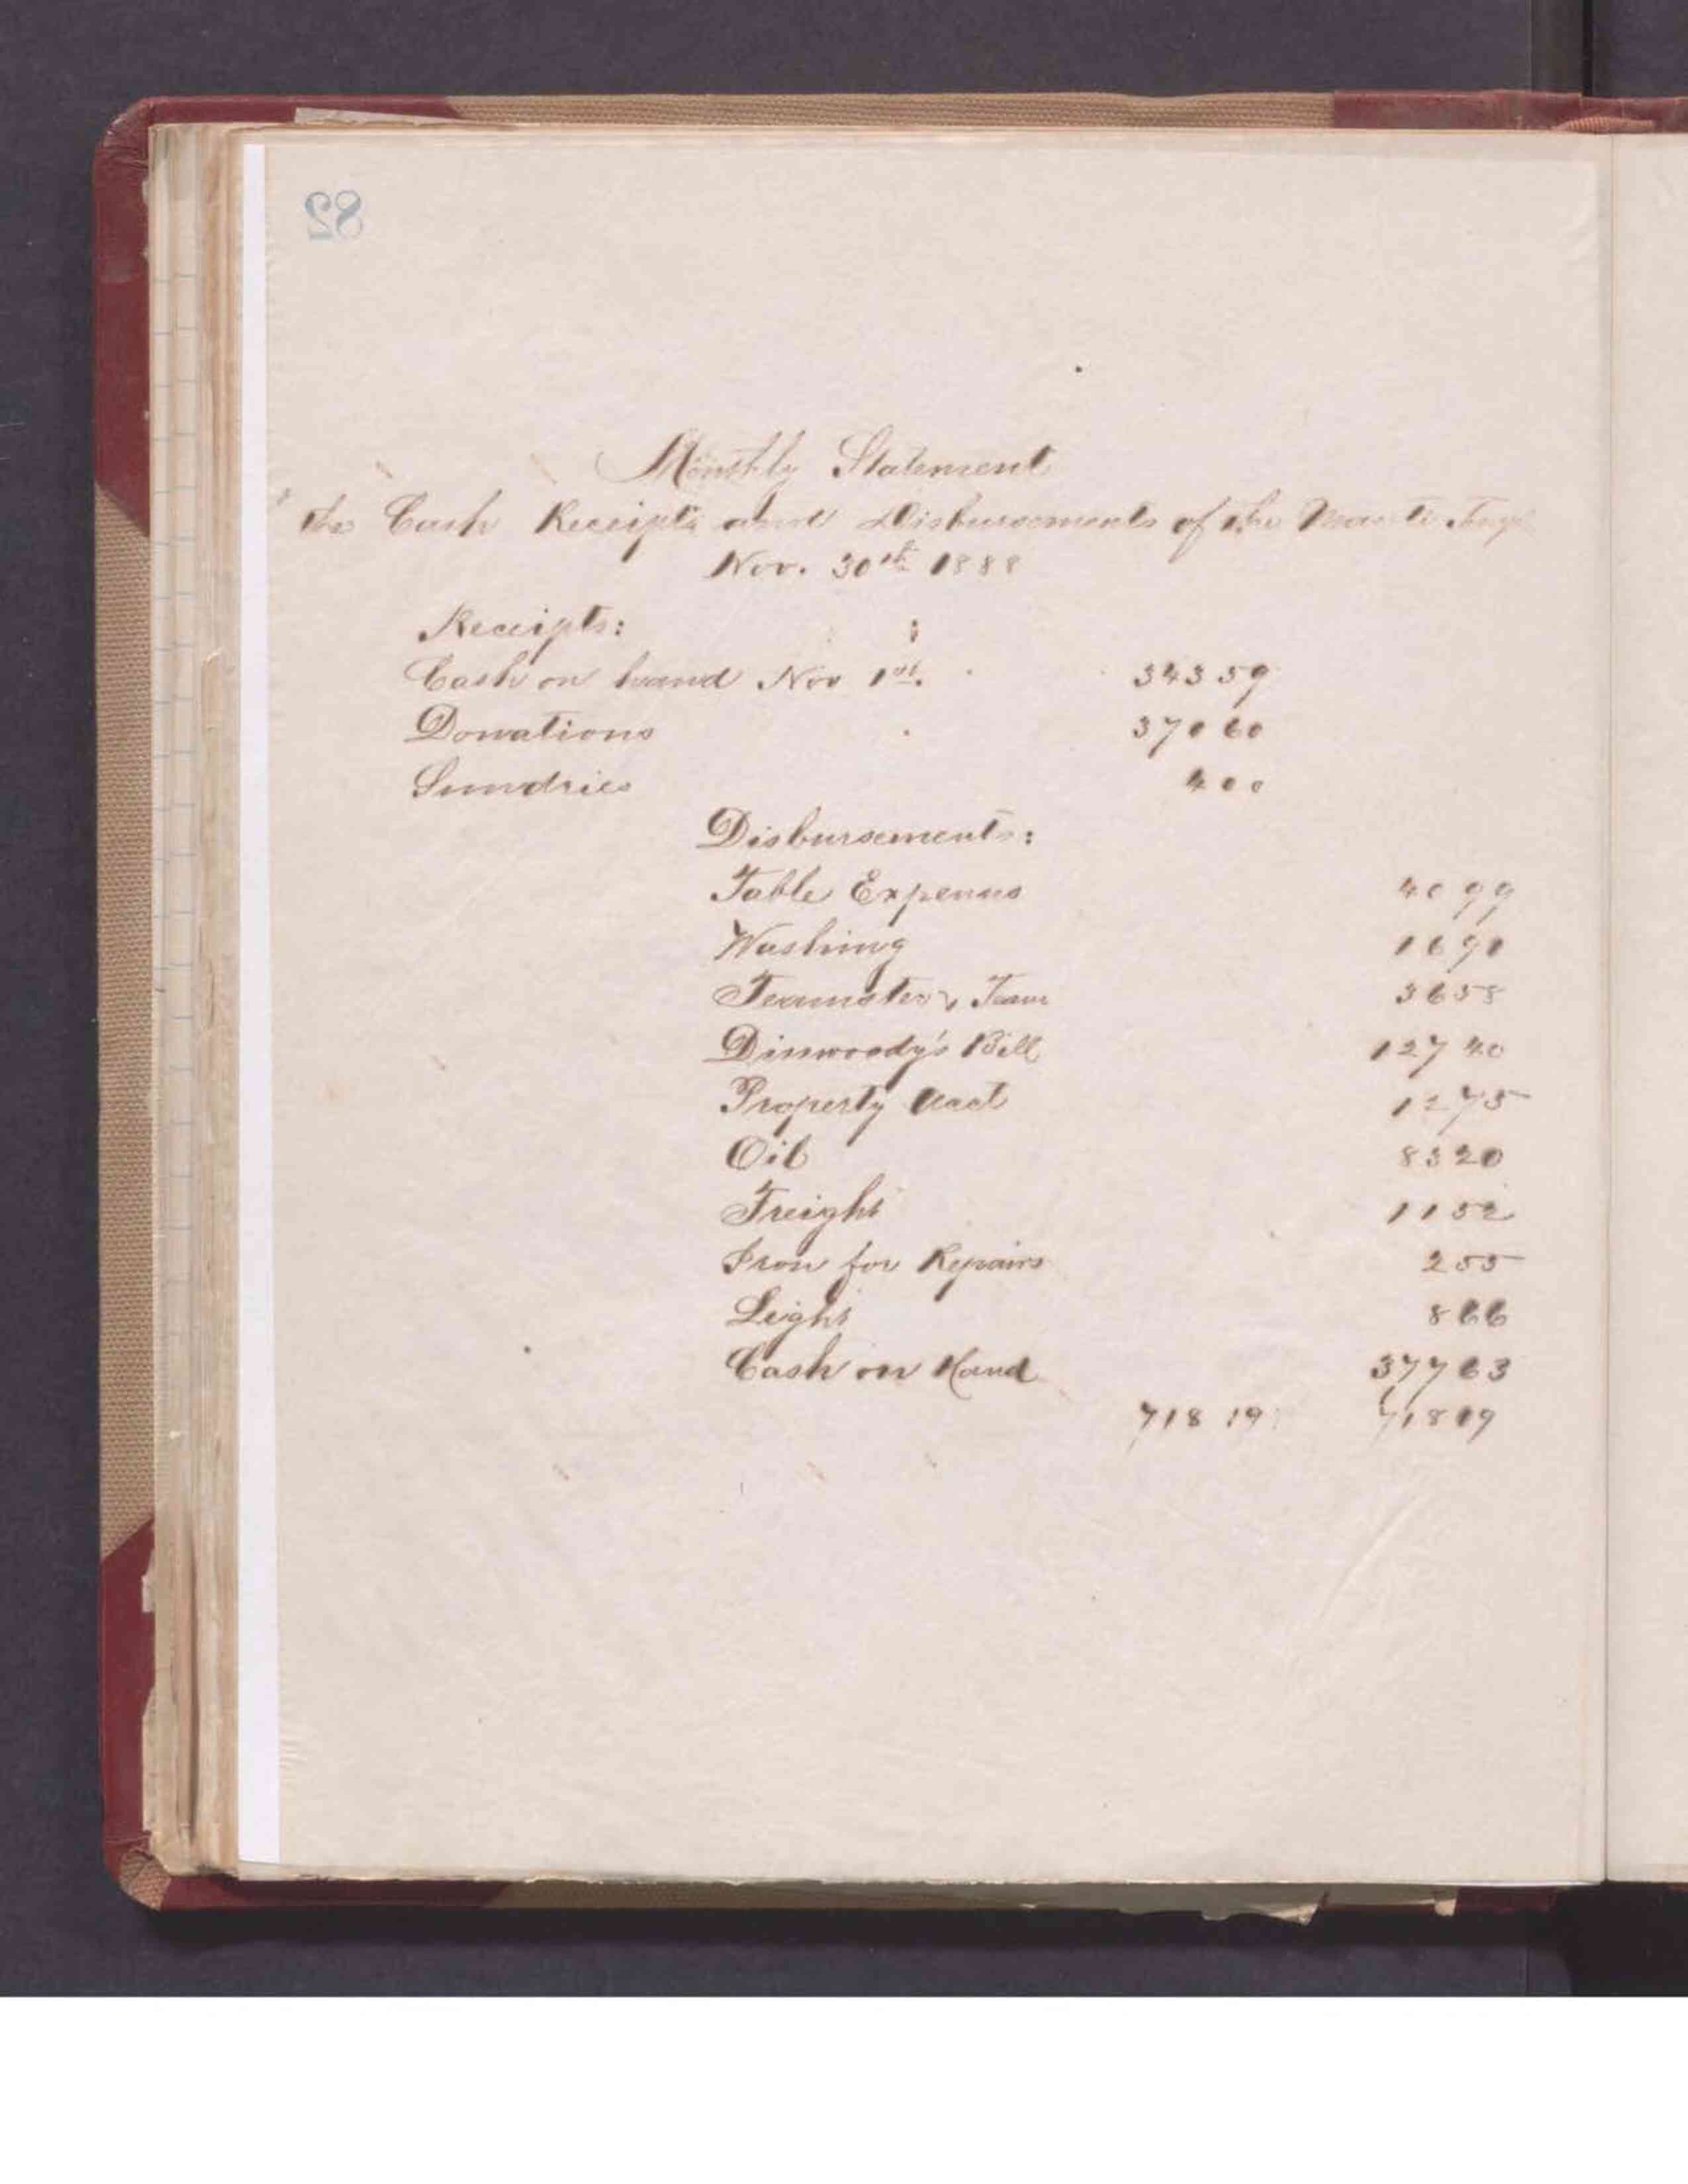 82
Monthly Statement
the Cash Receipts and Disbursements of the Manti Templ
Nov. 30th 1888
Receipts:
Cash on hand Nov 1st. 343 59
Donations 370 60
Sundries 4 00
Disbursements:
Table Expenses 40 99
Washing 16 91
Teamster & Team 36 58
Dinwoody's Bill 127 40
Property Acct 12 75
Oil 83 20
Freight 11 52
Iron for Repairs 2 55
Light 8 66
Cash on Hand 377 63
718 19 718 19